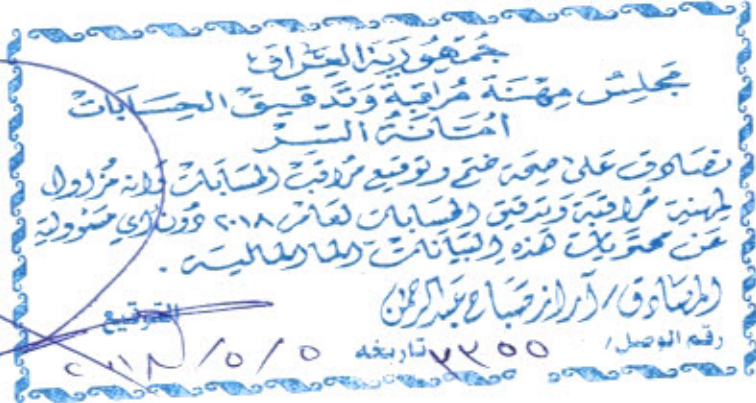 جمهورية العراق
مجلس مهنة مراقبة وتدقيق الحسابات
امانة السر
نصادق على صحة ختم وتوقيع مراقب الحسابات وانه مزاول
لمهنة مراقبة وتدقيق الحسابات لعام ٢٠١٨ دون اي مسؤولية
عن محتويات هذه البيانات المالية .
المصادق / آراز صباح عبدالرحمن
التوقيع
رقم الوصل / ٧٣٥٥ تاريخه ٥ / ٥ / ٢٠١٨